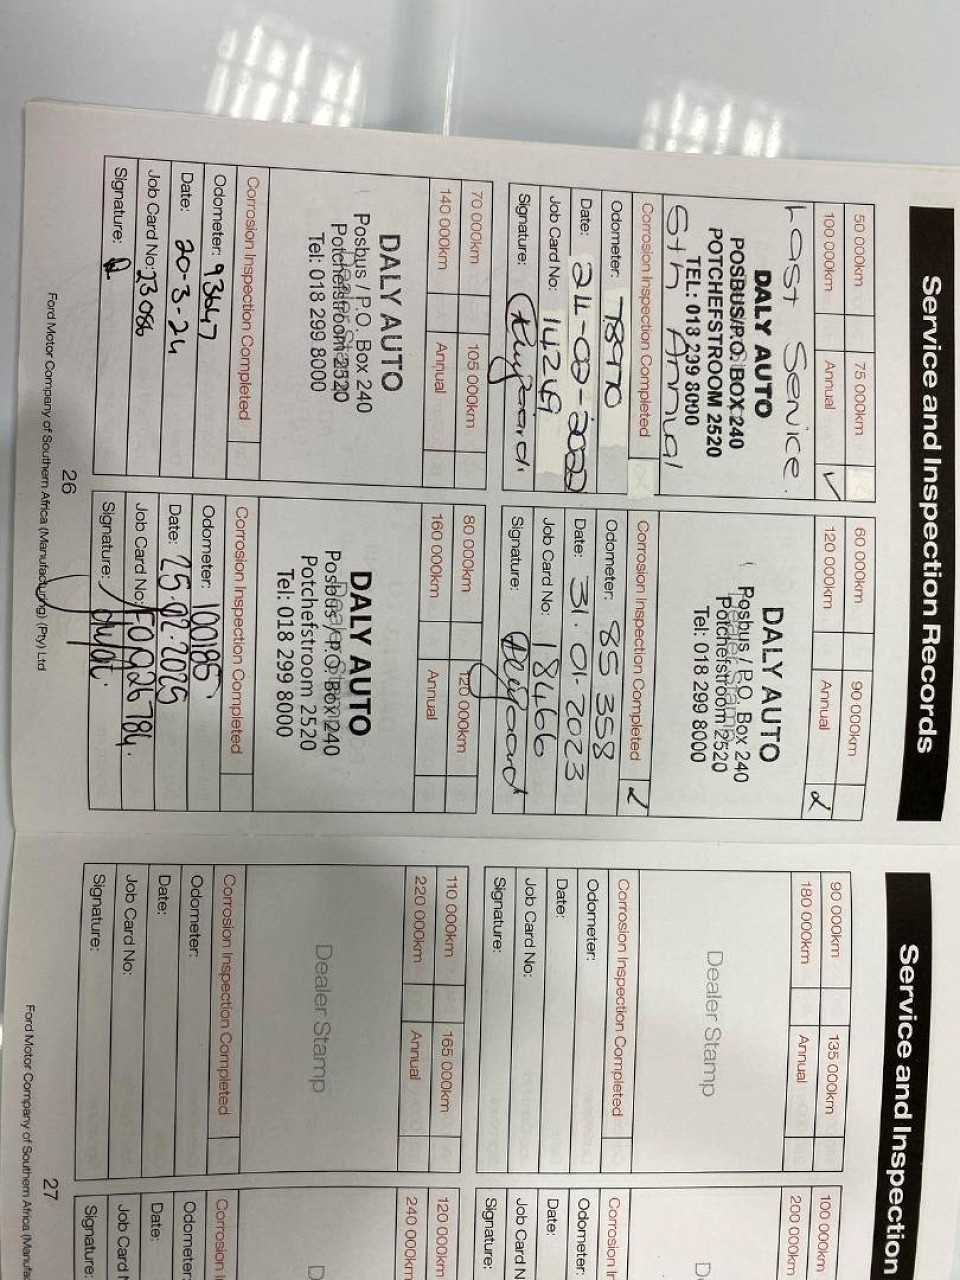 Service and Inspection Records
50 000km 75 000km
100 000km Annual ✓
Last Service.
DALY AUTO
POSBUS/P.O. BOX 240
POTCHEFSTROOM 2520
TEL: 018 299 8000
5th Annual
Corrosion Inspection Completed
Odometer: 78970
Date:
Job Card No: 14249
Signature:
60 000km 90 000km
120 000km Annual
DALY AUTO
Posbus / P.O. Box 240
Potchefstroom 2520
Tel: 018 299 8000
Corrosion Inspection Completed
Odometer: 85 358
Date: 31.01.2023
Job Card No: 18466
Signature:
70 000km 105 000km
140 000km Annual
DALY AUTO
Posbus / P.O. Box 240
Potchefstroom 2520
Tel: 018 299 8000
Corrosion Inspection Completed
Odometer: 93647
Date: 20-3-24
Job Card No: 23086
Signature:
80 000km 120 000km
160 000km Annual
DALY AUTO
Posbus / P.O Box 240
Potchefstroom 2520
Tel: 018 299 8000
Corrosion Inspection Completed
Odometer: 100185
Date: 25.02.2025
Job Card No: F0926784.
Signature:
26
Ford Motor Company of Southern Africa (Manufacturing) (Pty) Ltd
Service and Inspection
90 000km 135 000km
180 000km Annual
Dealer Stamp
Corrosion Inspection Completed
Odometer:
Date:
Job Card No:
Signature:
100 000km
200 000km
D
Corrosion Ir
Odometer:
Date:
Job Card N
Signature:
110 000km 165 000km
220 000km Annual
Dealer Stamp
Corrosion Inspection Completed
Odometer:
Date:
Job Card No:
Signature:
120 000km
240 000km
D
Corrosion I
Odometer:
Date:
Job Card N
Signature:
27
Ford Motor Company of Southern Africa (Manufa